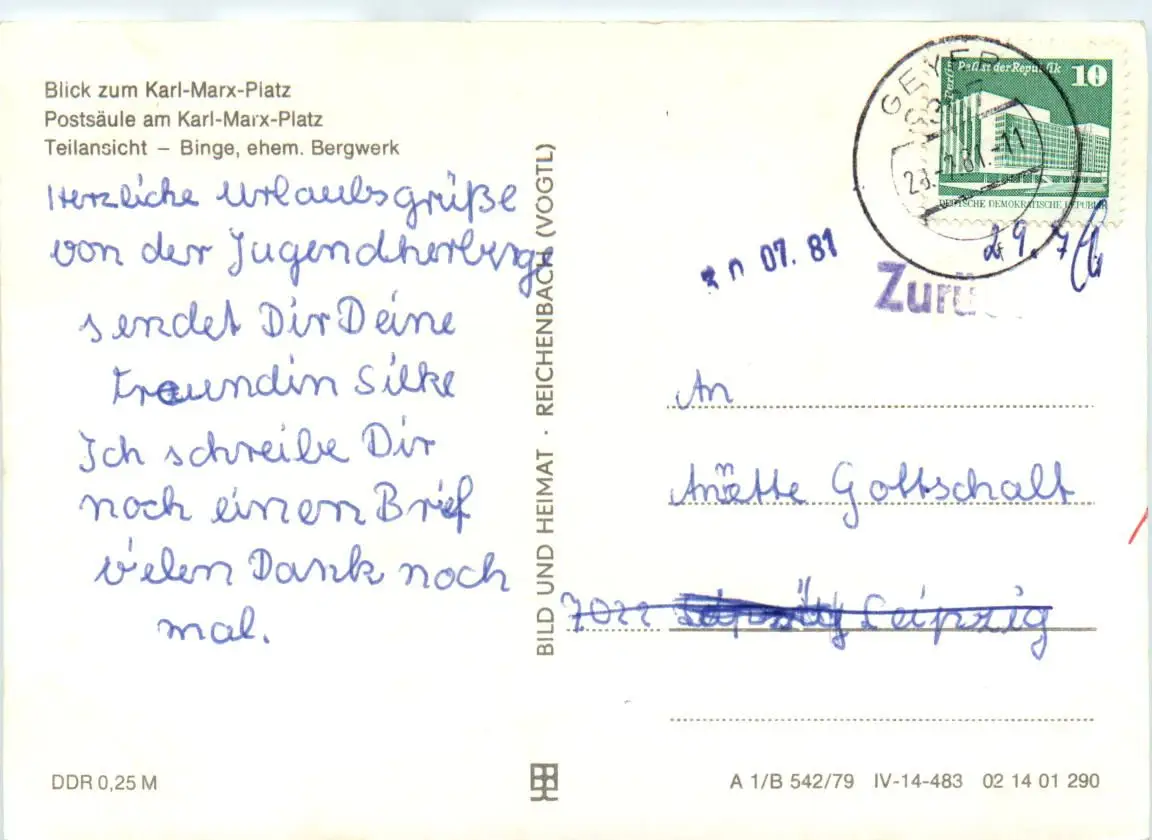 Blick zum Karl-Marx-Platz
Postsäule am Karl-Marx-Platz
Teilansicht – Binge, ehem. Bergwerk
Herzliche Urlaubsgrüße
von der Jugendherberge
sendet Dir Deine
Freundin Silke
Ich schreibe Dir
noch einen Brief
vielen Dank noch
mal.
DDR 0,25 M
BILD UND HEIMAT · REICHENBACH (VOGTL)
Berlin Palast der Republik 10
DEUTSCHE DEMOKRATISCHE REPUBLIK
GEYER
28.-7.81.-11
07. 81
29. 7
Zurü
An
Anette Gottschalt
7022 Leipzig
A 1/B 542/79 IV-14-483 02 14 01 290